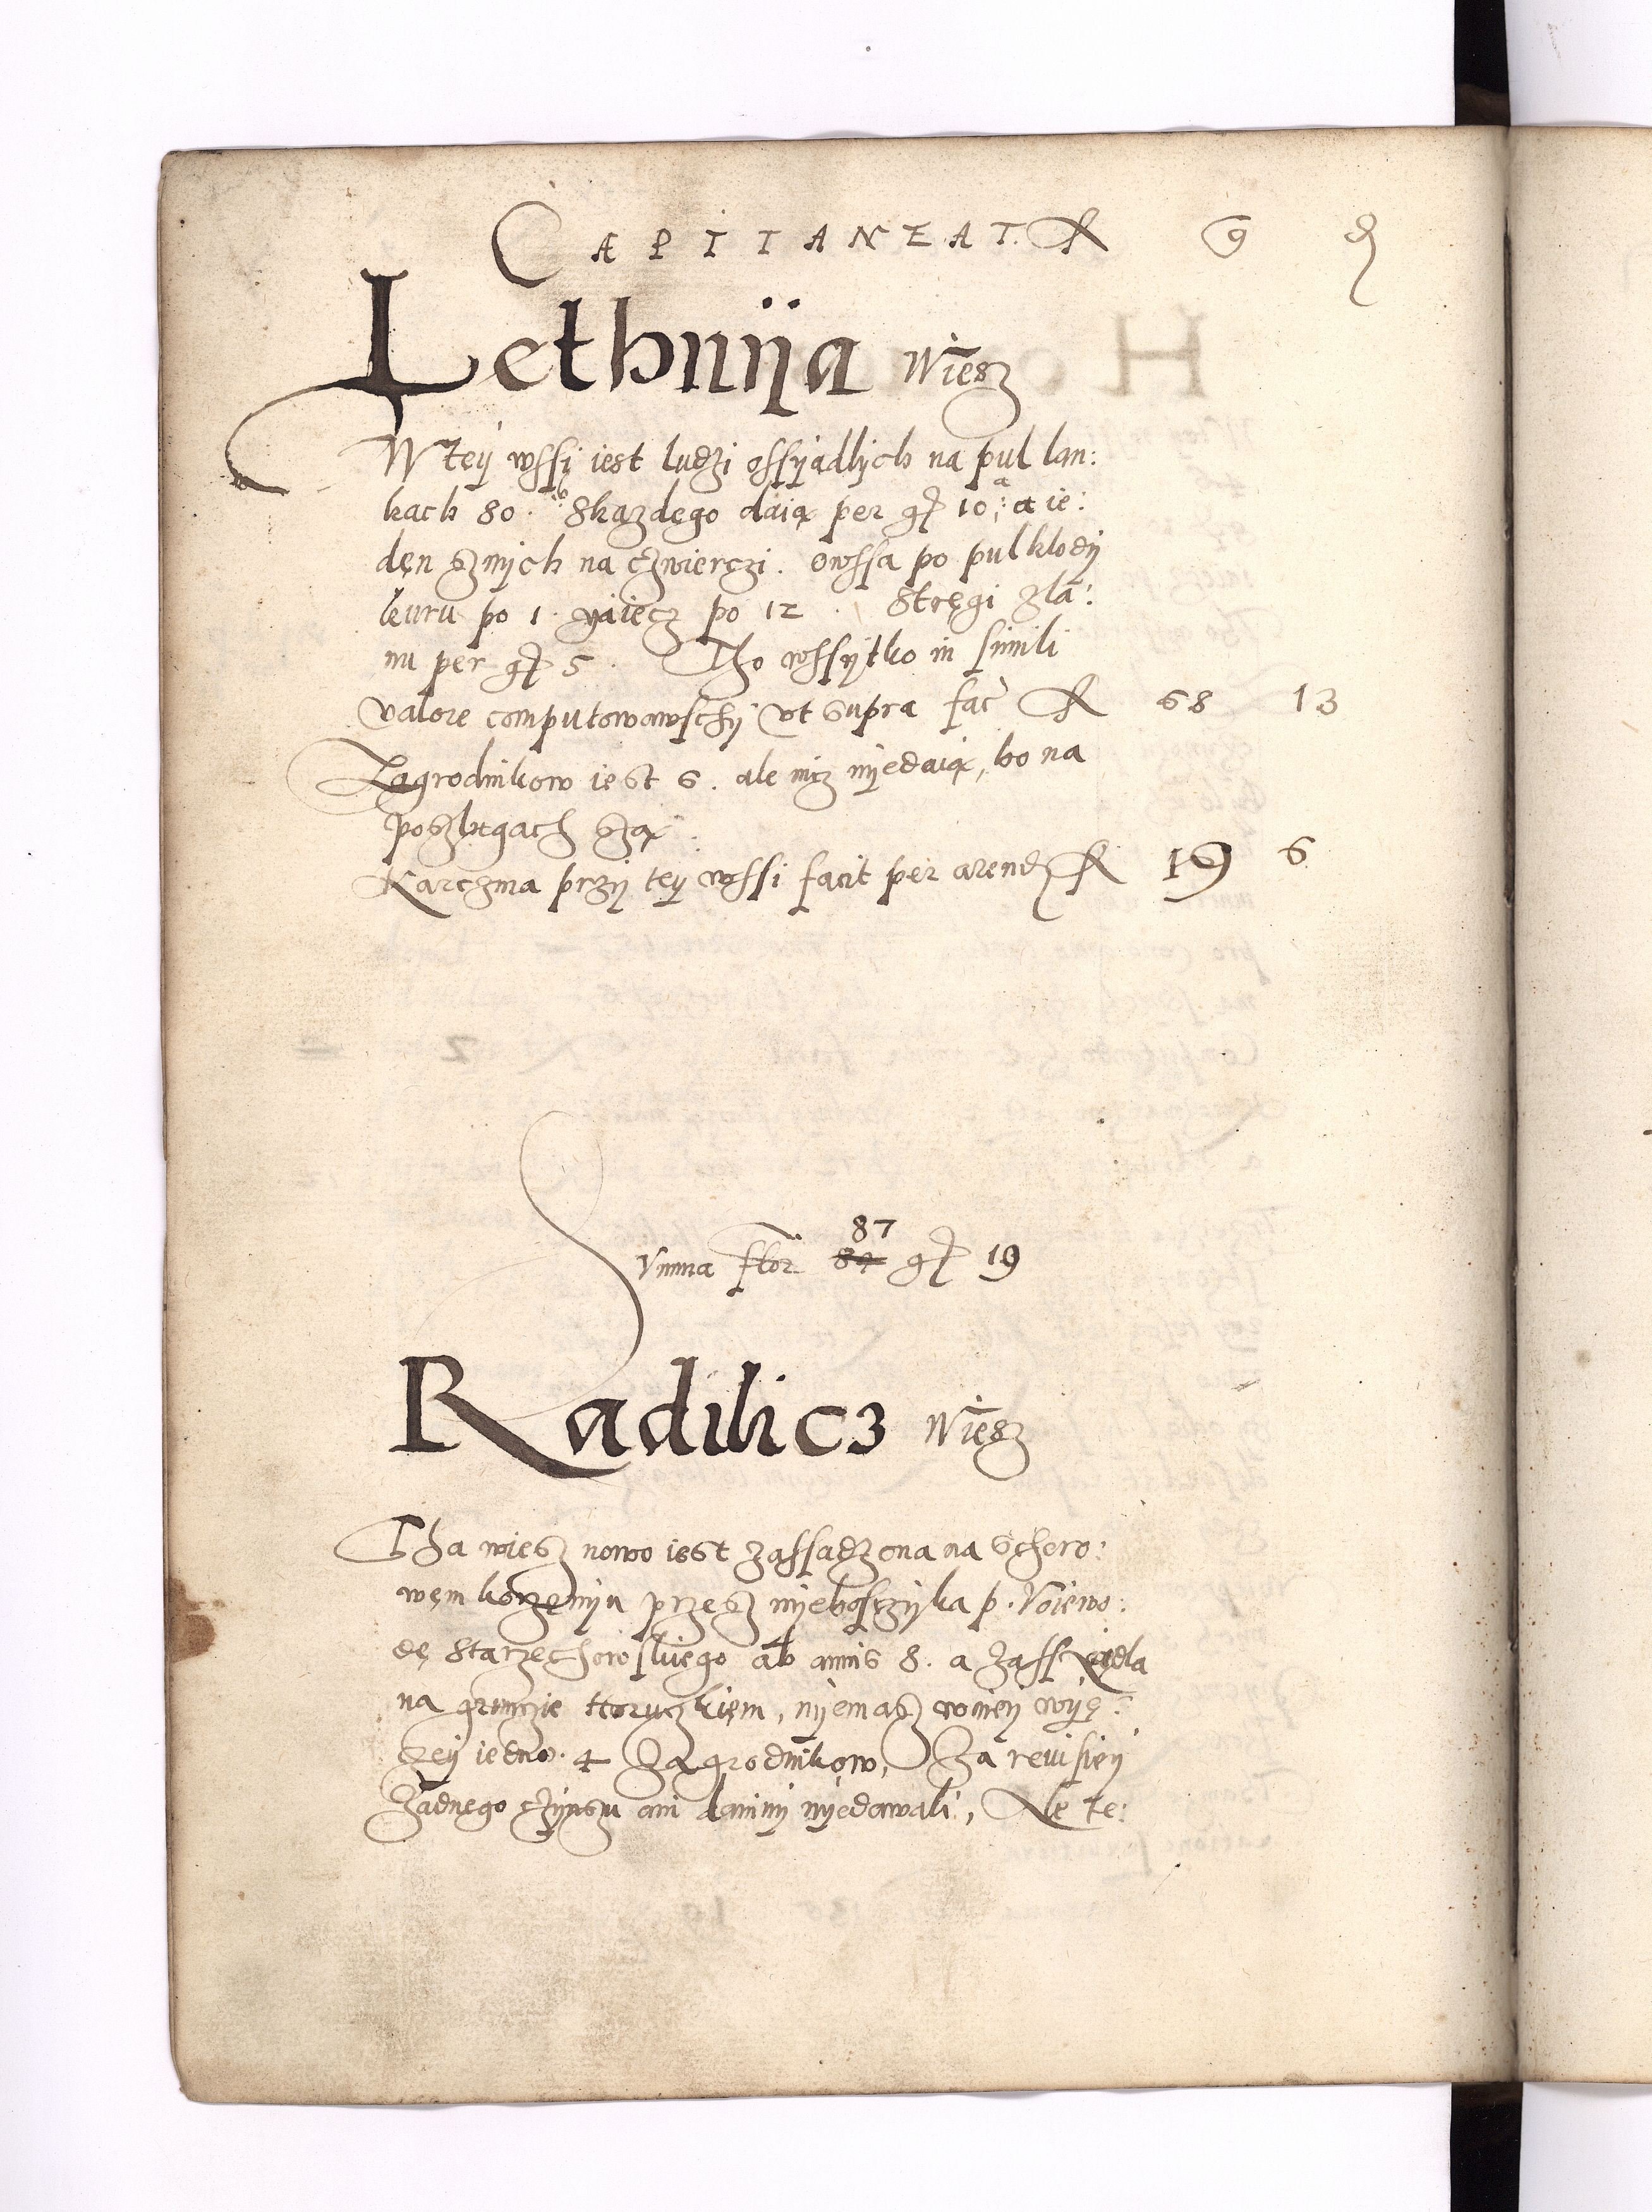 CAPITANEAT.
Lethnija Wiesz
W tey wssi iest ludzi ossyadlych na pul lan:
kach 80. Skazdego daią per gr 10. a ie:
den sznych na czwierczi. owssa po pul klody
kuru po 1. yaiecz po 12. Stregi zla:
nu per gr 5. Tho wssytko in simili
valore computowawschy vt supra fac 68 13
Zagrodnikow iest 6. ale nicz nyedaią, bo na
poszlugach są
Karczma przy tey wssi facit per arend 19 6
Summa flor 87 gr 19
Radilicz Wiesz
Tha wiesz nowo iest zassadzona na schoro:
wem korzenyu przesz nyeboszczyka p. Voiewo:
dę Starzechowskiego ab annis 8. a zassiadla
na gruncie Horuczkiem, nyemasz w niey wyę:
czey iedno. 4 Zagrodnikow, Za reuisiey
żadnego czynszu ani daniny nyedawali, Ale te: